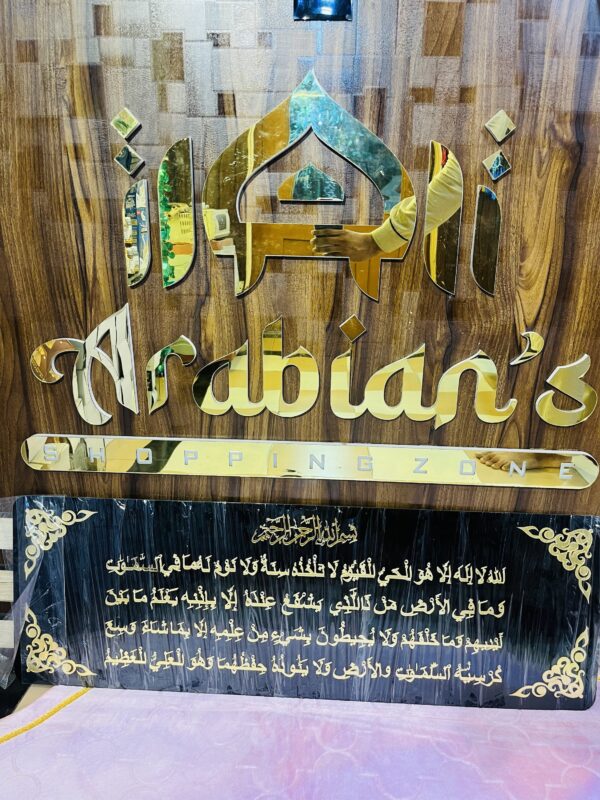 Arabian's
SHOPPING ZONE
بسم الله الرحمن الرحيم
الله لا إله إلا هو الحي القيوم لا تأخذه سنة ولا نوم له ما في السمٰوٰت
وما في الأرض من ذا الذي يشفع عنده إلا بإذنه يعلم ما بين
أيديهم وما خلفهم ولا يحيطون بشيء من علمه إلا بما شاء وسع
كرسيه السمٰوٰت والأرض ولا يئوده حفظهما وهو العلي العظيم